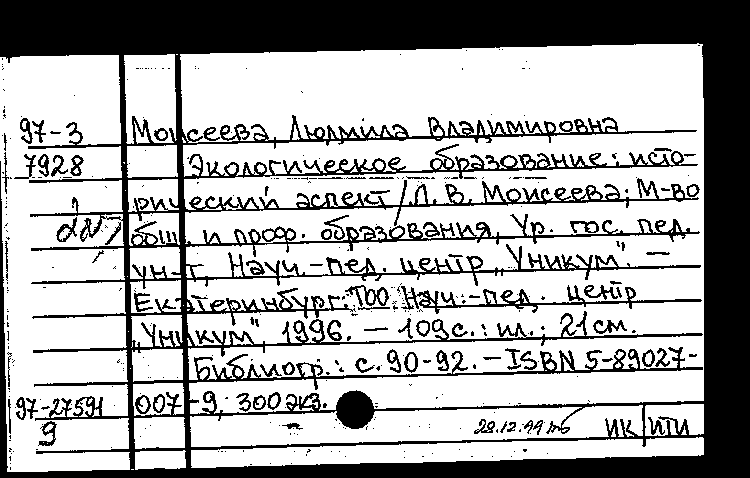 97-3 Моисеева, Людмила Владимировна
7928 Экологическое образование: исто-
рический аспект / Л. В. Моисеева; М-во
общ. и проф. образования, Ур. гос. пед.
ун-т, Науч.-пед. центр „Уникум". —
Екатеринбург: ТОО Науч.-пед. центр
„Уникум", 1996. — 109 с.: ил.; 21 см.
Библиогр.: с. 90-92. — ISBN 5-89027-
97-27591 007-9, 300 экз.
9 ИК ИТИ